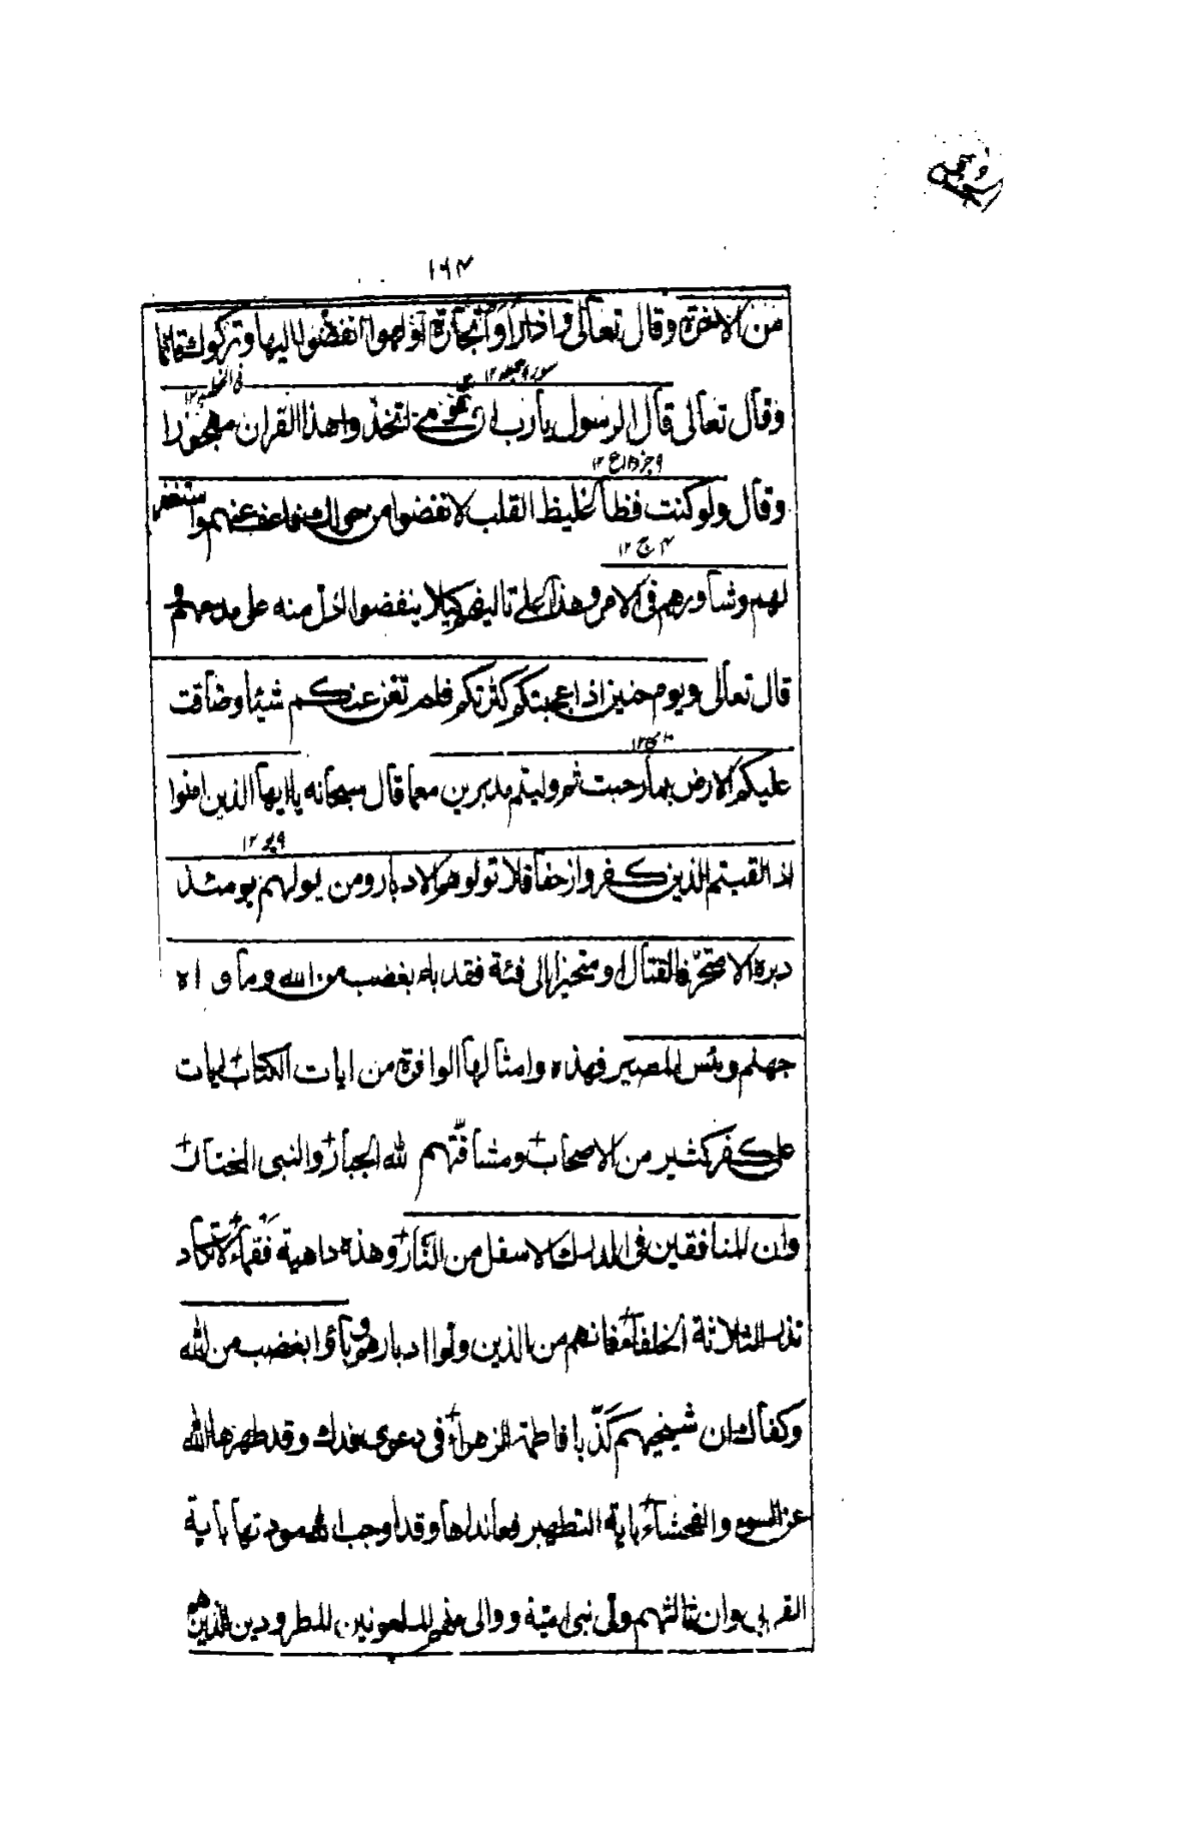 ١٦٣
من الاخرة وقال تعالى واذا راوا تجارة او لهوا انفضوا اليها وتركوك قائما
سورة جمعه ١٢
وقال تعالى قال الرسول يارب ان قومى اتخذوا هذا القران مهجورا
وقال ولو كنت فظا غليظ القلب لانفضوا من حولك فاعف عنهم واستغفر
لهم وشاورهم فى الامر وهذا على تاليفهم كيلا ينفضوا منه على
قال تعالى ويوم حنين اذ اعجبتكم كثرتكم فلم تغن عنكم شيئا وضاقت
عليكم الارض بما رحبت ثم وليتم مدبرين معما قال سبحانه يا ايها الذين امنوا
اذا لقيتم الذين كفروا زحفا فلا تولوهم الادبار ومن يولهم يومئذ
دبره الا متحرفا لقتال او متحيزا الى فئة فقد باء بغضب من الله وماواه
جهنم وبئس المصير فهذه وامثالها الوافرة من ايات الكتاب لايات
على كفر كثير من الاصحاب ومشاقتهم لله الجبار والنبى المختار
وان المنافقين فى الدرك الاسفل من النار وهذه داهية فقماء لا تكاد
تذر الثلاثة الخلفاء فانهم من الذين ولوا ادبارهم وباؤا بغضب من الله
وكفاك ان شيخيهم كذبا فاطمة الزهراء فى دعوى فدك وقد طهرها الله
عن السوء والفحشاء باية التطهير فعانداها وقد اوجب الله مودتها باية
القربى وان ثالثهم ولى بنى امية ووالى الملعونين المطرودين الذين هم